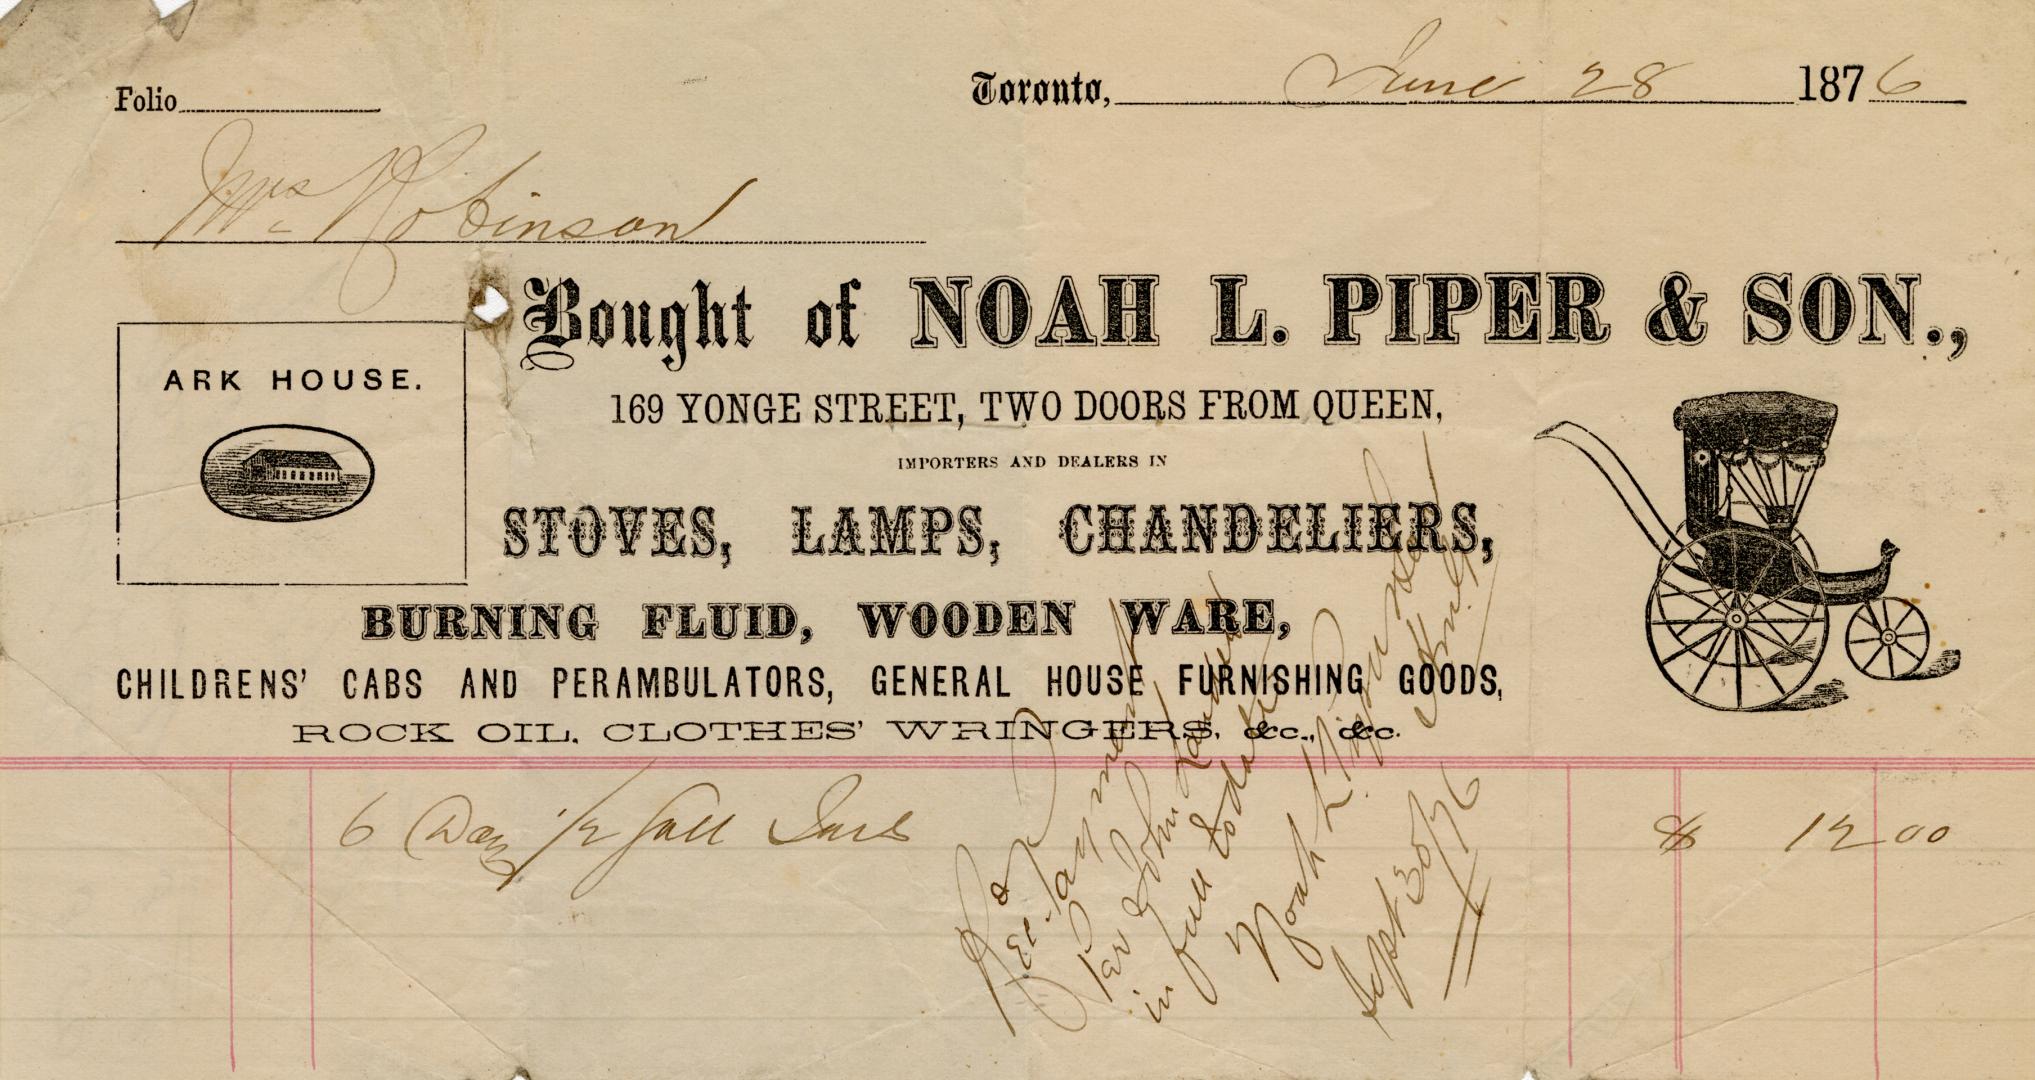 Folio
Toronto, June 28 1876
Mrs Robinson
Bought of NOAH L. PIPER & SON.,
ARK HOUSE.
169 YONGE STREET, TWO DOORS FROM QUEEN,
IMPORTERS AND DEALERS IN
STOVES, LAMPS, CHANDELIERS,
BURNING FLUID, WOODEN WARE,
CHILDRENS' CABS AND PERAMBULATORS, GENERAL HOUSE FURNISHING GOODS,
ROCK OIL, CLOTHES' WRINGERS, &c., &c.
6 Doz 1/2 Gall Jars $ 12 00
Rec'd Payment
Per John
in full to date
Noah L Piper & Son
Sept 30/76